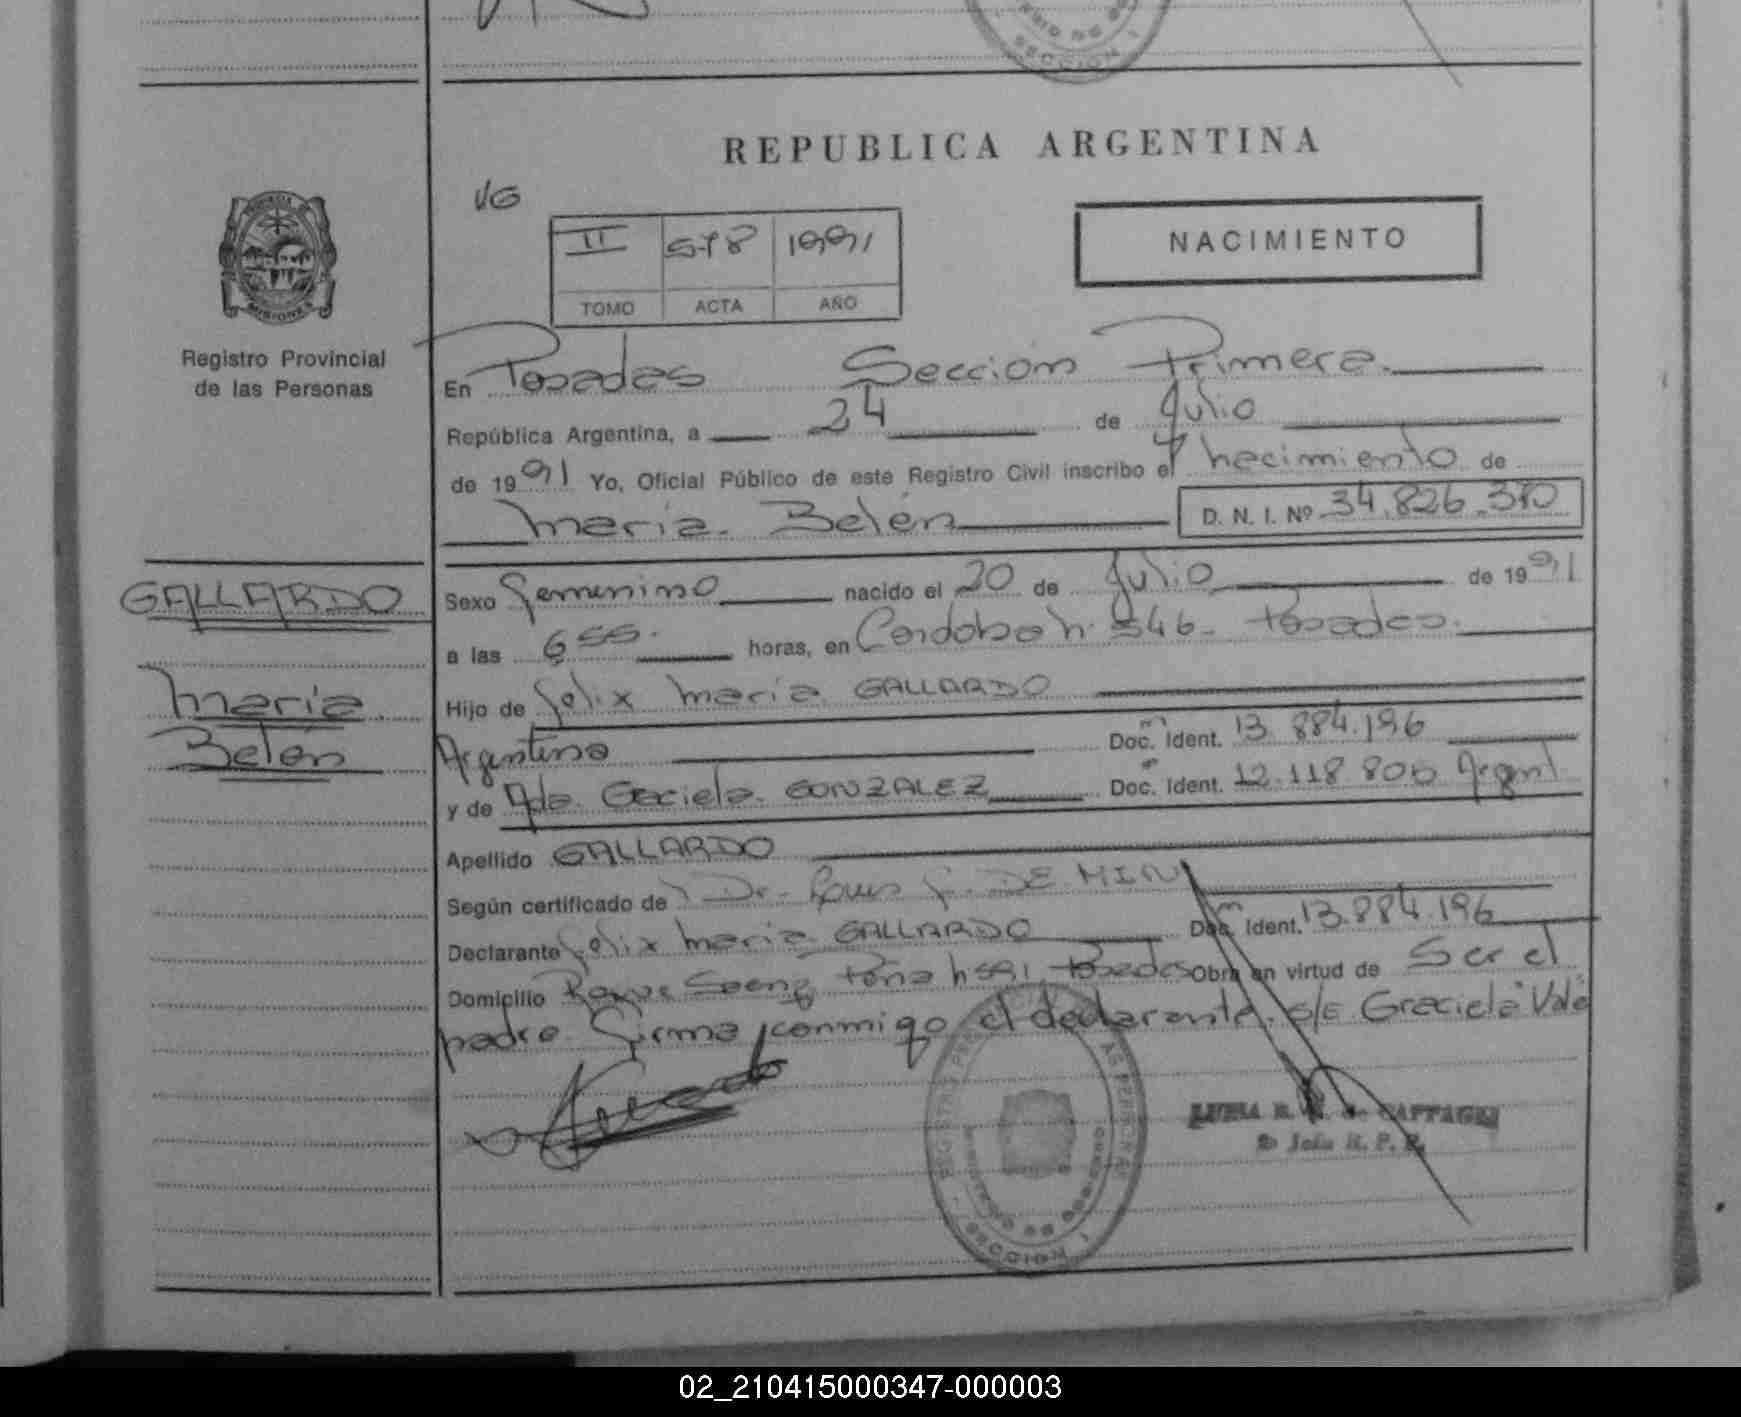 REPUBLICA ARGENTINA
VG
II 578 1991
TOMO ACTA AÑO
NACIMIENTO
MISIONES
Registro Provincial
de las Personas
En Posadas Sección Primera.
República Argentina, a 24 de Julio
de 1991 Yo, Oficial Público de este Registro Civil inscribo el nacimiento de
María Belén D. N. I. Nº 34.826.370
GALLARDO
María
Belén
Sexo femenino nacido el 20 de Julio de 1991
a las 6 55. horas, en Córdoba n. 546. Posadas.
Hijo de Felix María GALLARDO
Argentino Doc. Ident. 13.884.196
y de Ada Graciela GONZALEZ Doc. Ident. 12.118.805 Argent
Apellido GALLARDO
Según certificado de Dr. DE MIN
Declarante Felix María GALLARDO Doc. Ident. 13.884.196
Domicilio Roque Saenz Peña Posadas Obra en virtud de Ser el
padre. Firma conmigo el declarante. s/e Graciela Vale
SECCION 1
02_210415000347-000003